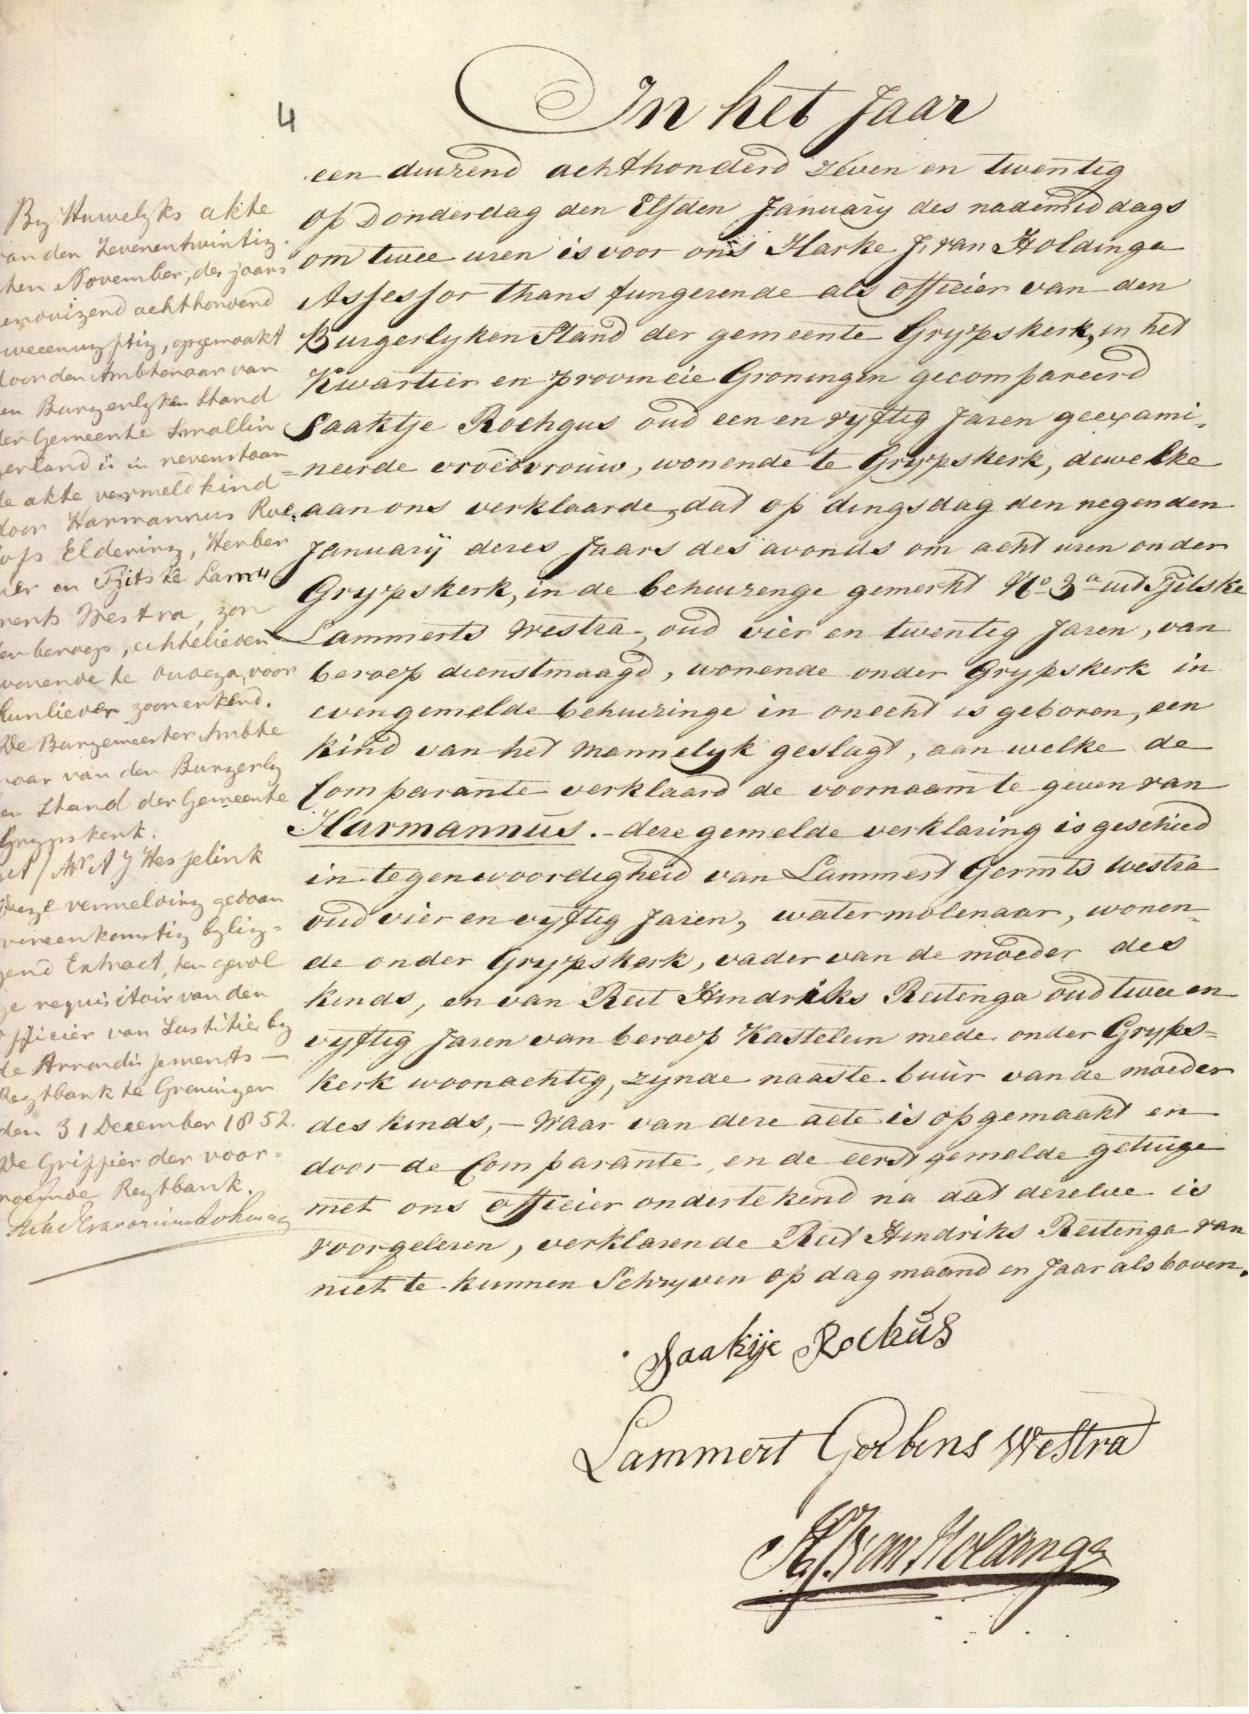 4
In het Jaar
een duizend achthonderd zeven en twentig
op Donderdag den Elfden January des nademiddags
om twee uren is voor ons Harke J. van Holdinga
Assessor thans fungerende als officier van den
Burgerlyken Stand der gemeente Grypskerk, in het
Kwartier en provincie Groningen gecompareerd
Saaktje Rochgus oud een en vyftig Jaren geexami,
neerde vroedvrouw, wonende te Grypskerk, dewelke
aan ons verklaarde, dat op dingsdag den negenden
January dezes Jaars des avonds om acht uren onder
Grypskerk, in de behuizenge gemerkt No 3a uit Tjitske
Lammerts Westra, oud vier en twentig Jaren, van
beroep dienstmaagd, wonende onder Grypskerk in
evengemelde behuizinge in onecht is geboren, een
kind van het mannelyk geslagt, aan welke de
Comparante verklaard de voornaam te geven van
Harmannus. - deze gemelde verklaring is geschied
in tegenwoordigheid van Lammert Germts Westra
oud vier en vyftig Jaren, watermolenaar, wonen-
de onder Grypskerk, vader van de moeder des
kinds, en van Reit Hindriks Reitenga oud twee en
vyftig Jaren van beroep Kastelein mede onder Gryps=
kerk woonachtig, zynde naaste buur van de moeder
des kinds, - waar van deze acte is opgemaakt en
door de Comparante, en de eerst gemelde getuige
met ons officier ondertekend na dat dezelve is
voorgelezen, verklarende Reit Hindriks Reitenga van
niet te kunnen Schryven op dag maand en Jaar als boven.
Saakije Rochus
Lammert Gerbens Westra
H.J. van Holdinga
By Huwelyks akte
van den Zevenentwintig
sten November, des jaars
eenduizend achthonderd
tweeenvyftig, opgemaakt
door den Ambtenaar van
den Burgerlyken Stand
der Gemeente Smallin
gerland is in nevenstaan
de akte vermeld kind
door Harmannus Roe,
lofs Eldering, Herber
gier en Tjitske Lam
merts Westra, zon
der beroep, echtelieden
wonende te Oudega, voor
hunlieder zoon erkend.
De Burgemeester Ambte
naar van den Burgerly
ken Stand der Gemeente
Grypskerk.
get/ Mr A J Hesselink
Deeze vermelding gedaan
overeenkomstig bylig-
gend Extract, ten gevol
ge requisitoir van den
Officier van Justitie by
de Arrondissements-
Regtbank te Groningen
den 31 December 1852.
De Griffier der voor-
noemde Regtbank.